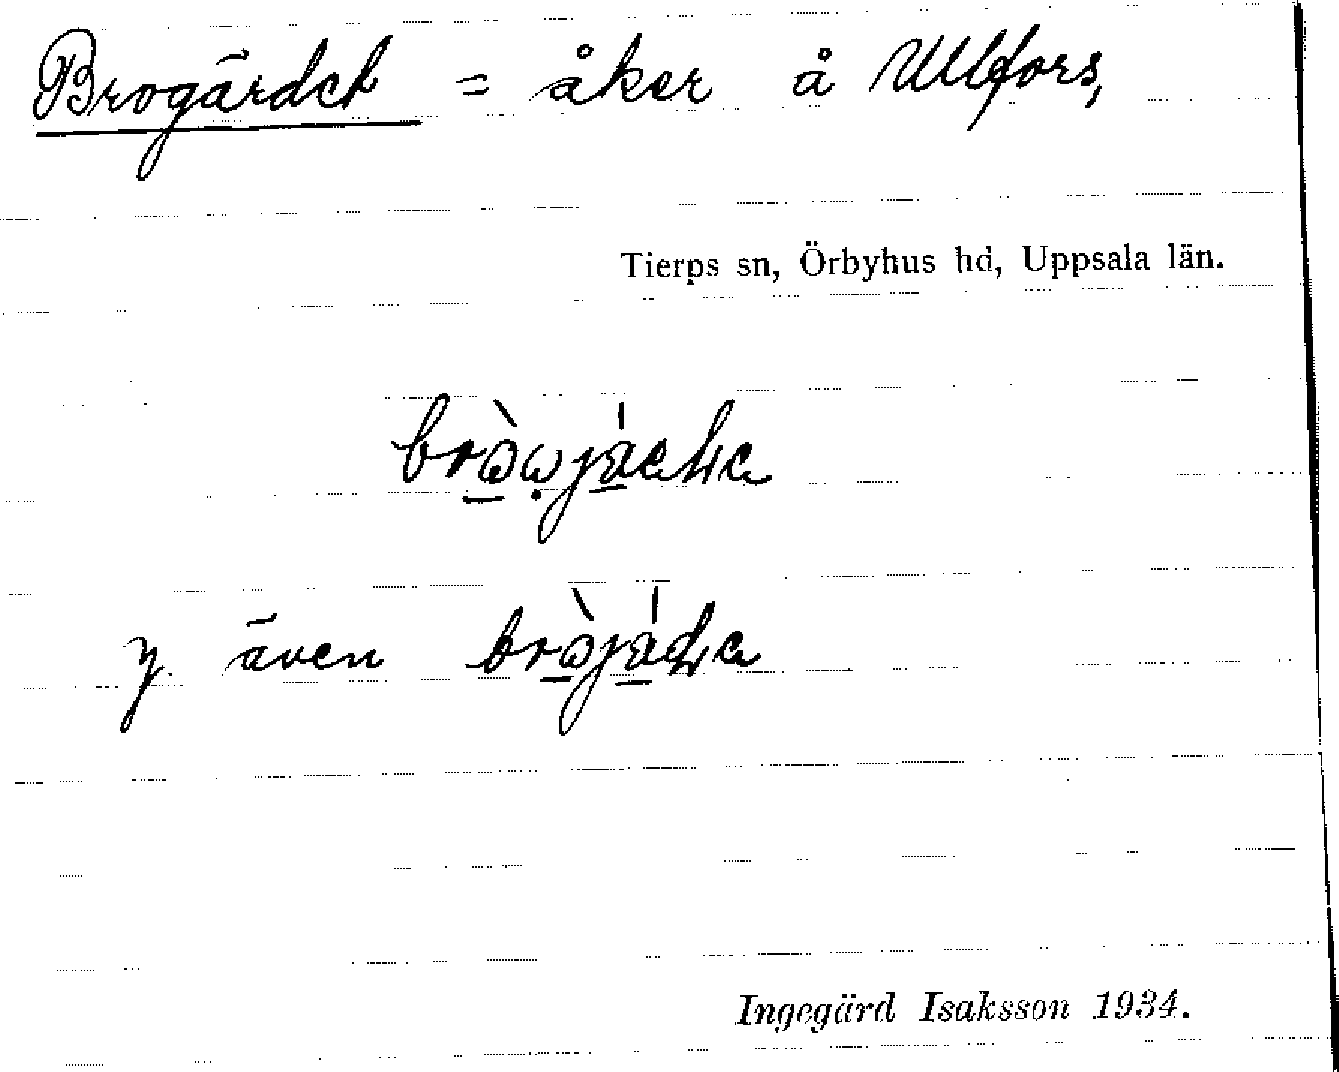 Brogärdet = åker å Ullfors,
Tierps sn, Örbyhus hd, Uppsala län.
y. även
Ingegärd Isaksson 1934.